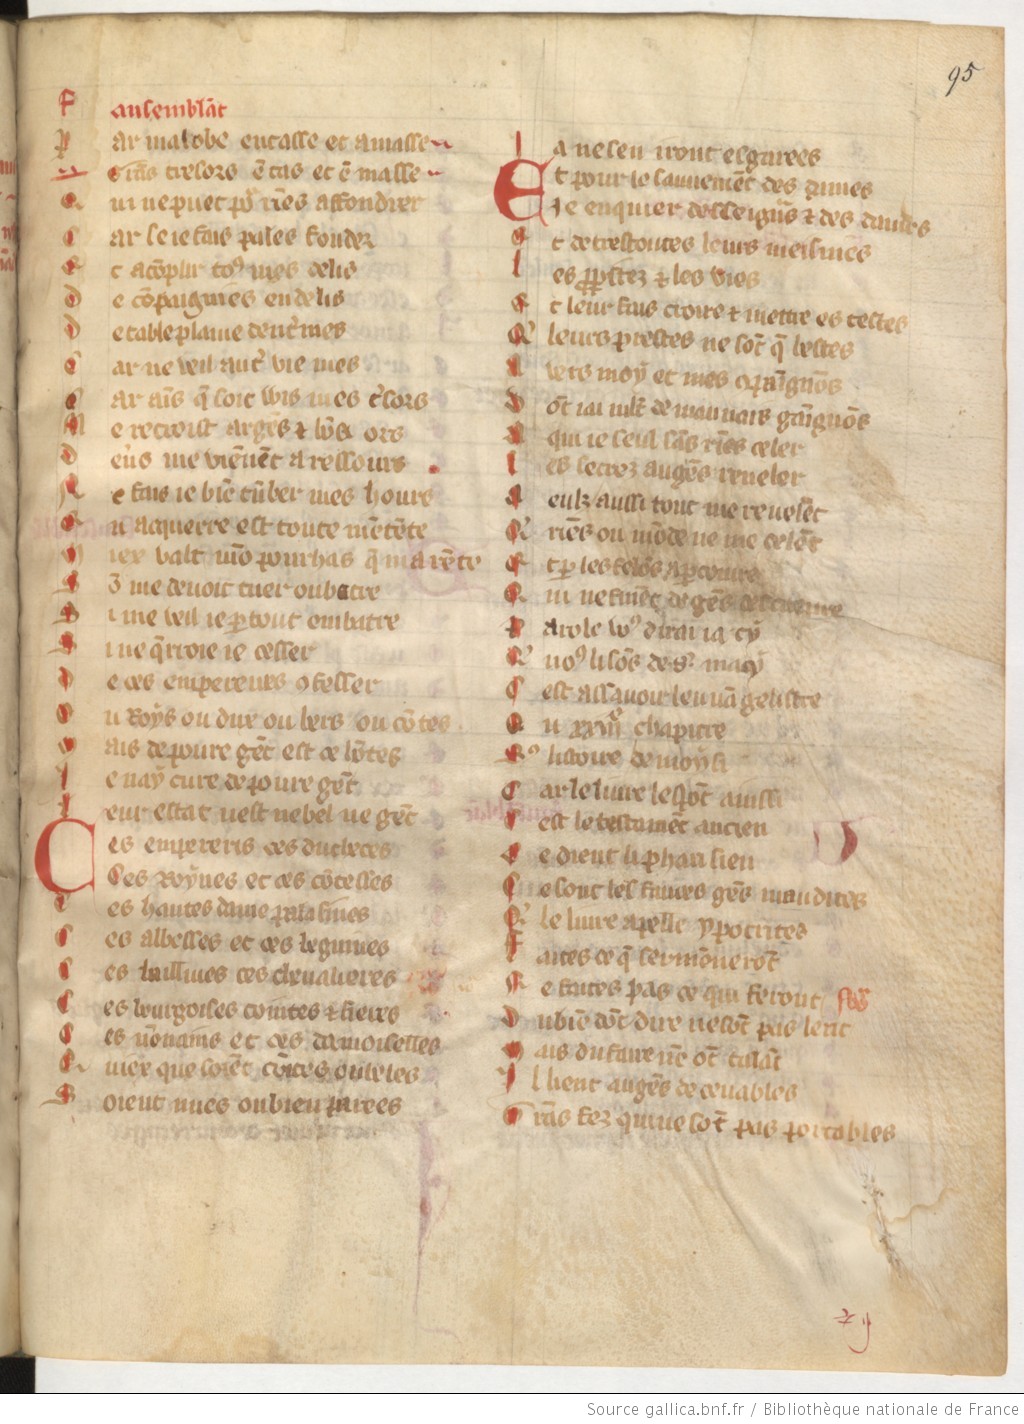 95
F ausemblāt
P ar ma lobe entasse et amasse
Grās tresors ē tas et ē masse
Q ui ne puet po2 riēs affondrer
C ar se ie fais pales fonder
E t acōplir to9 mes delis
D e cōpaignies en delis
D e table plaine dentmes
C ar ne veil autre vie mes
C ar aīs q̄ soit wis mes tresors
M e recroist argēs et ors
D eus me viēnēt a ressours
N e fais ie biē tūber mes hours
E n acquerre est toute mētēte
M iex valt mō pourchas q̄ ma rēte
S 3 me devoit tuer ou batre
S i me veil ie p tout embatre
S i ne q̄rroie ie cesser
D e ces empereurs 9fesser
O u Roys ou dux ou bers ou cōtes
M ais de poure gēt est ce hōtes
I e nay cure de poure gēt
L eur estat nest ne bel ne gēt
C es empereris ces ducheces
Ces Roynes et ces cōtesses
C es hautes dame palasines
C es abesses et ces beguines
C es baillives ces chevalieres
C es bourgoises cointes et fieres
C es nōnains et ces damoiselles
P uiex que soiēt cōtes ou leles
S oient nues ou bien parees
I a ne sen iront esgarees
Et pour le sauvemēt des dmes
Ie enquier des seignrs et des dames
E t de trestoutes leurs mesnies
L es ppstez et les vies
E t leur fais croire et mettre es testes
Q leurs prestes ne sōt q̄ bestes
A vers moy et mes cōpaignōs
D ōt iai mlt de mauvais gaignōs
A qui ie seul sās riēs celer
L es secrez au gēs reveler
E eulz aussi tout me revelēt
Q riēs ou mōde ne me celēt
E t p les felōs apcoivre
Q ui ne finēt de gēs decoivre
P arole vo9 dirai ia cy
Q no9 lisōs de st macy
C est assavoir leuvāgelistre
O u xxiij chapitre
S9 histoire de moysi
C ar le livre lespōt ainssi
C est le testamēt ancien
S e dient li pharisien
C e sont les fausses gēs maudites
Q le livre apelle ypocrites
F aites ce q̄ sermōnerōt
N e faites pas ce qui feront
D u biē dōt dire ne sōt pas lent
M ais du faire nē ōt talāt
I l lient au gēs decevables
G rās fez qui ne sōt pas portables
Source gallica.bnf.fr / Bibliothèque nationale de France